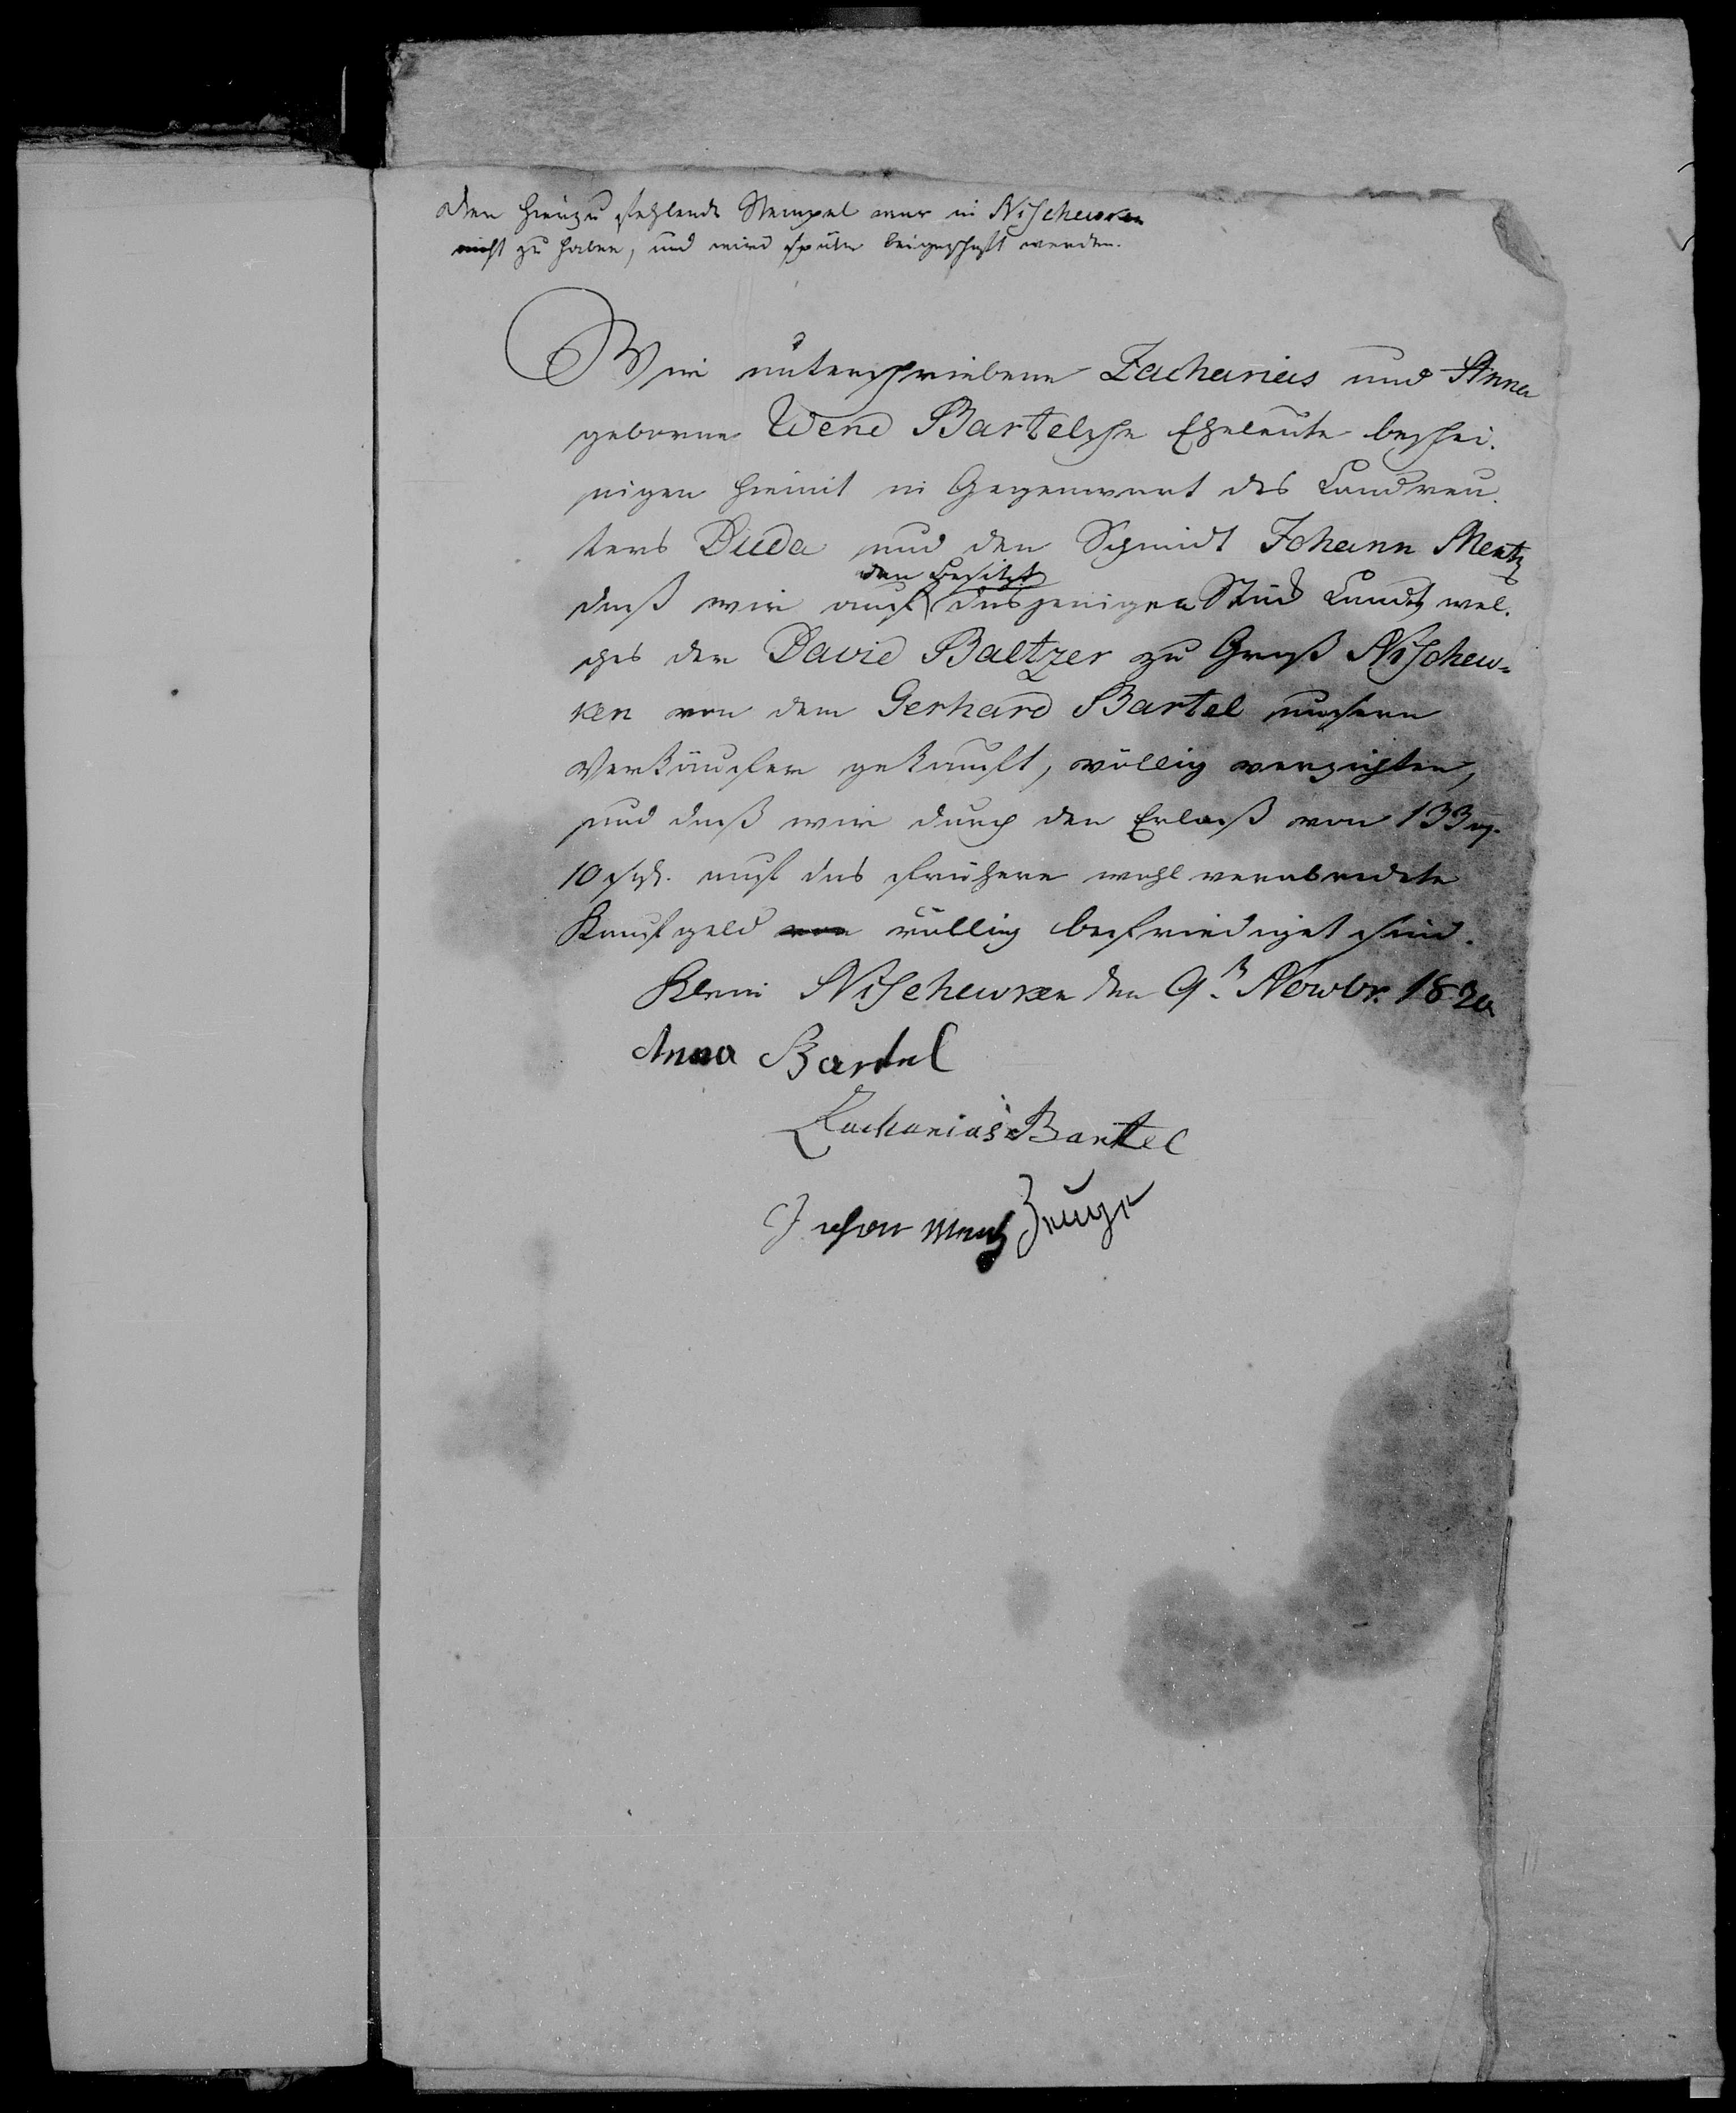 Der hiezu fehlende Stempel war in Nischewken
nicht zu haben, und wird später beigeschaft werden.
Wir unterschriebene Zacharias und Anna
geborne Wend Bartelsche Eheleute beschei-
nigen hiemit in Gegenwart des Landreu-
ters Duda und den Schmidt Johann Mentz
den Besitz
daß wir auf dasjenigen Stück Landtz wel-
ches der David Baltzer zu Groß Nischew-
ken von dem Gerhard Bartel unsern
Verkäufer gekauft, völlig verzichten,
und daß wir durch den Erlaß von 133 rg.
10 sgr. auf das frühere wohl verabredete
Kaufgeld von völlig befriediget sind.
Klein Nischewken den 9t Novbr. 1820
Anna Bartel
Zacharias Bartel
Johan Mentz Zeuge